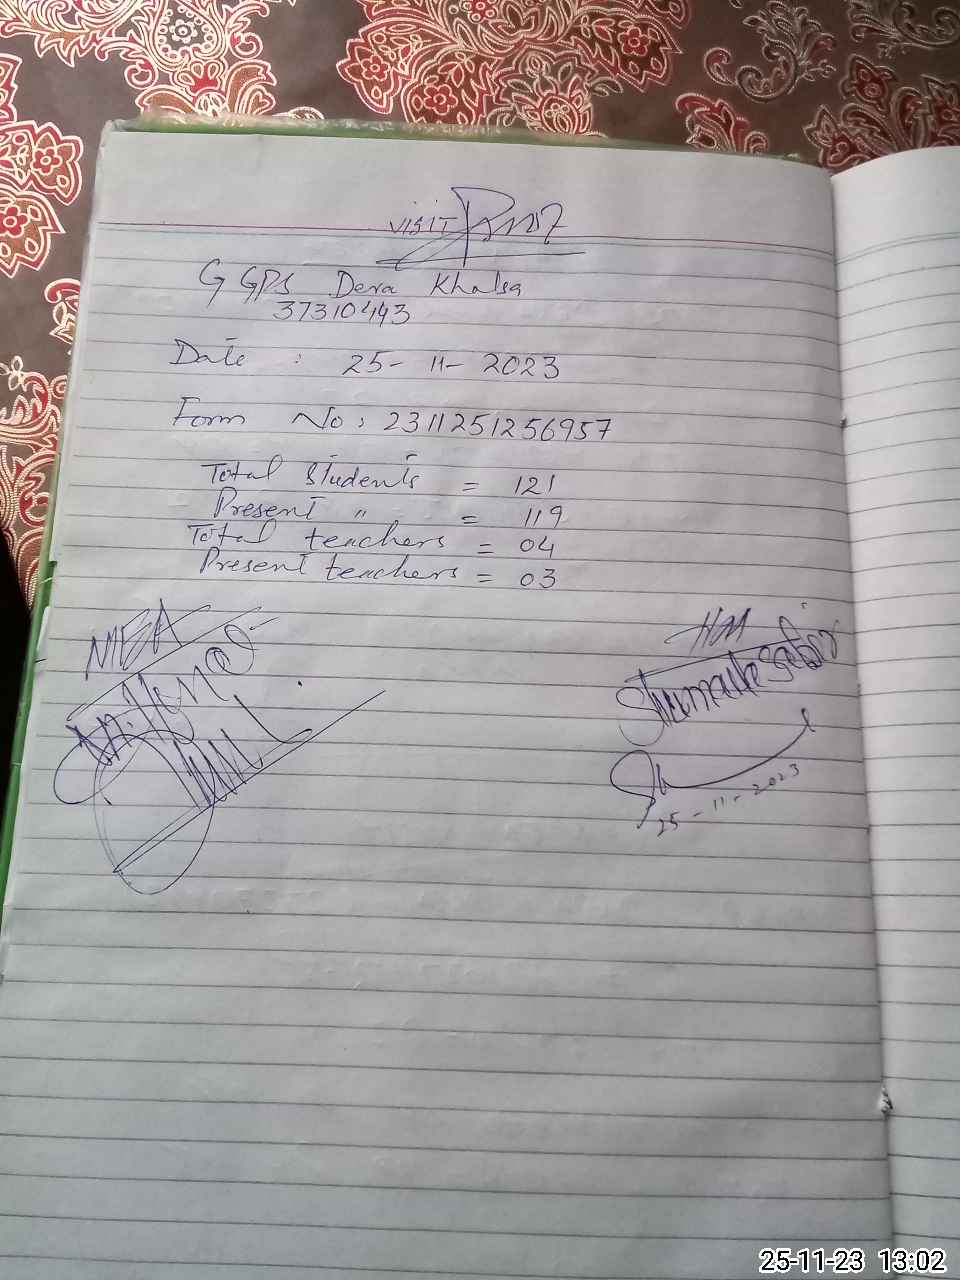 VISIT
GGPS Dera Khalsa
37310443
Date : 25-11-2023
Form No: 2311251256957
Total Students = 121
Present " = 119
Total teachers = 04
Present teachers = 03
MEA
HM
25-11-2023
25-11-23 13:02